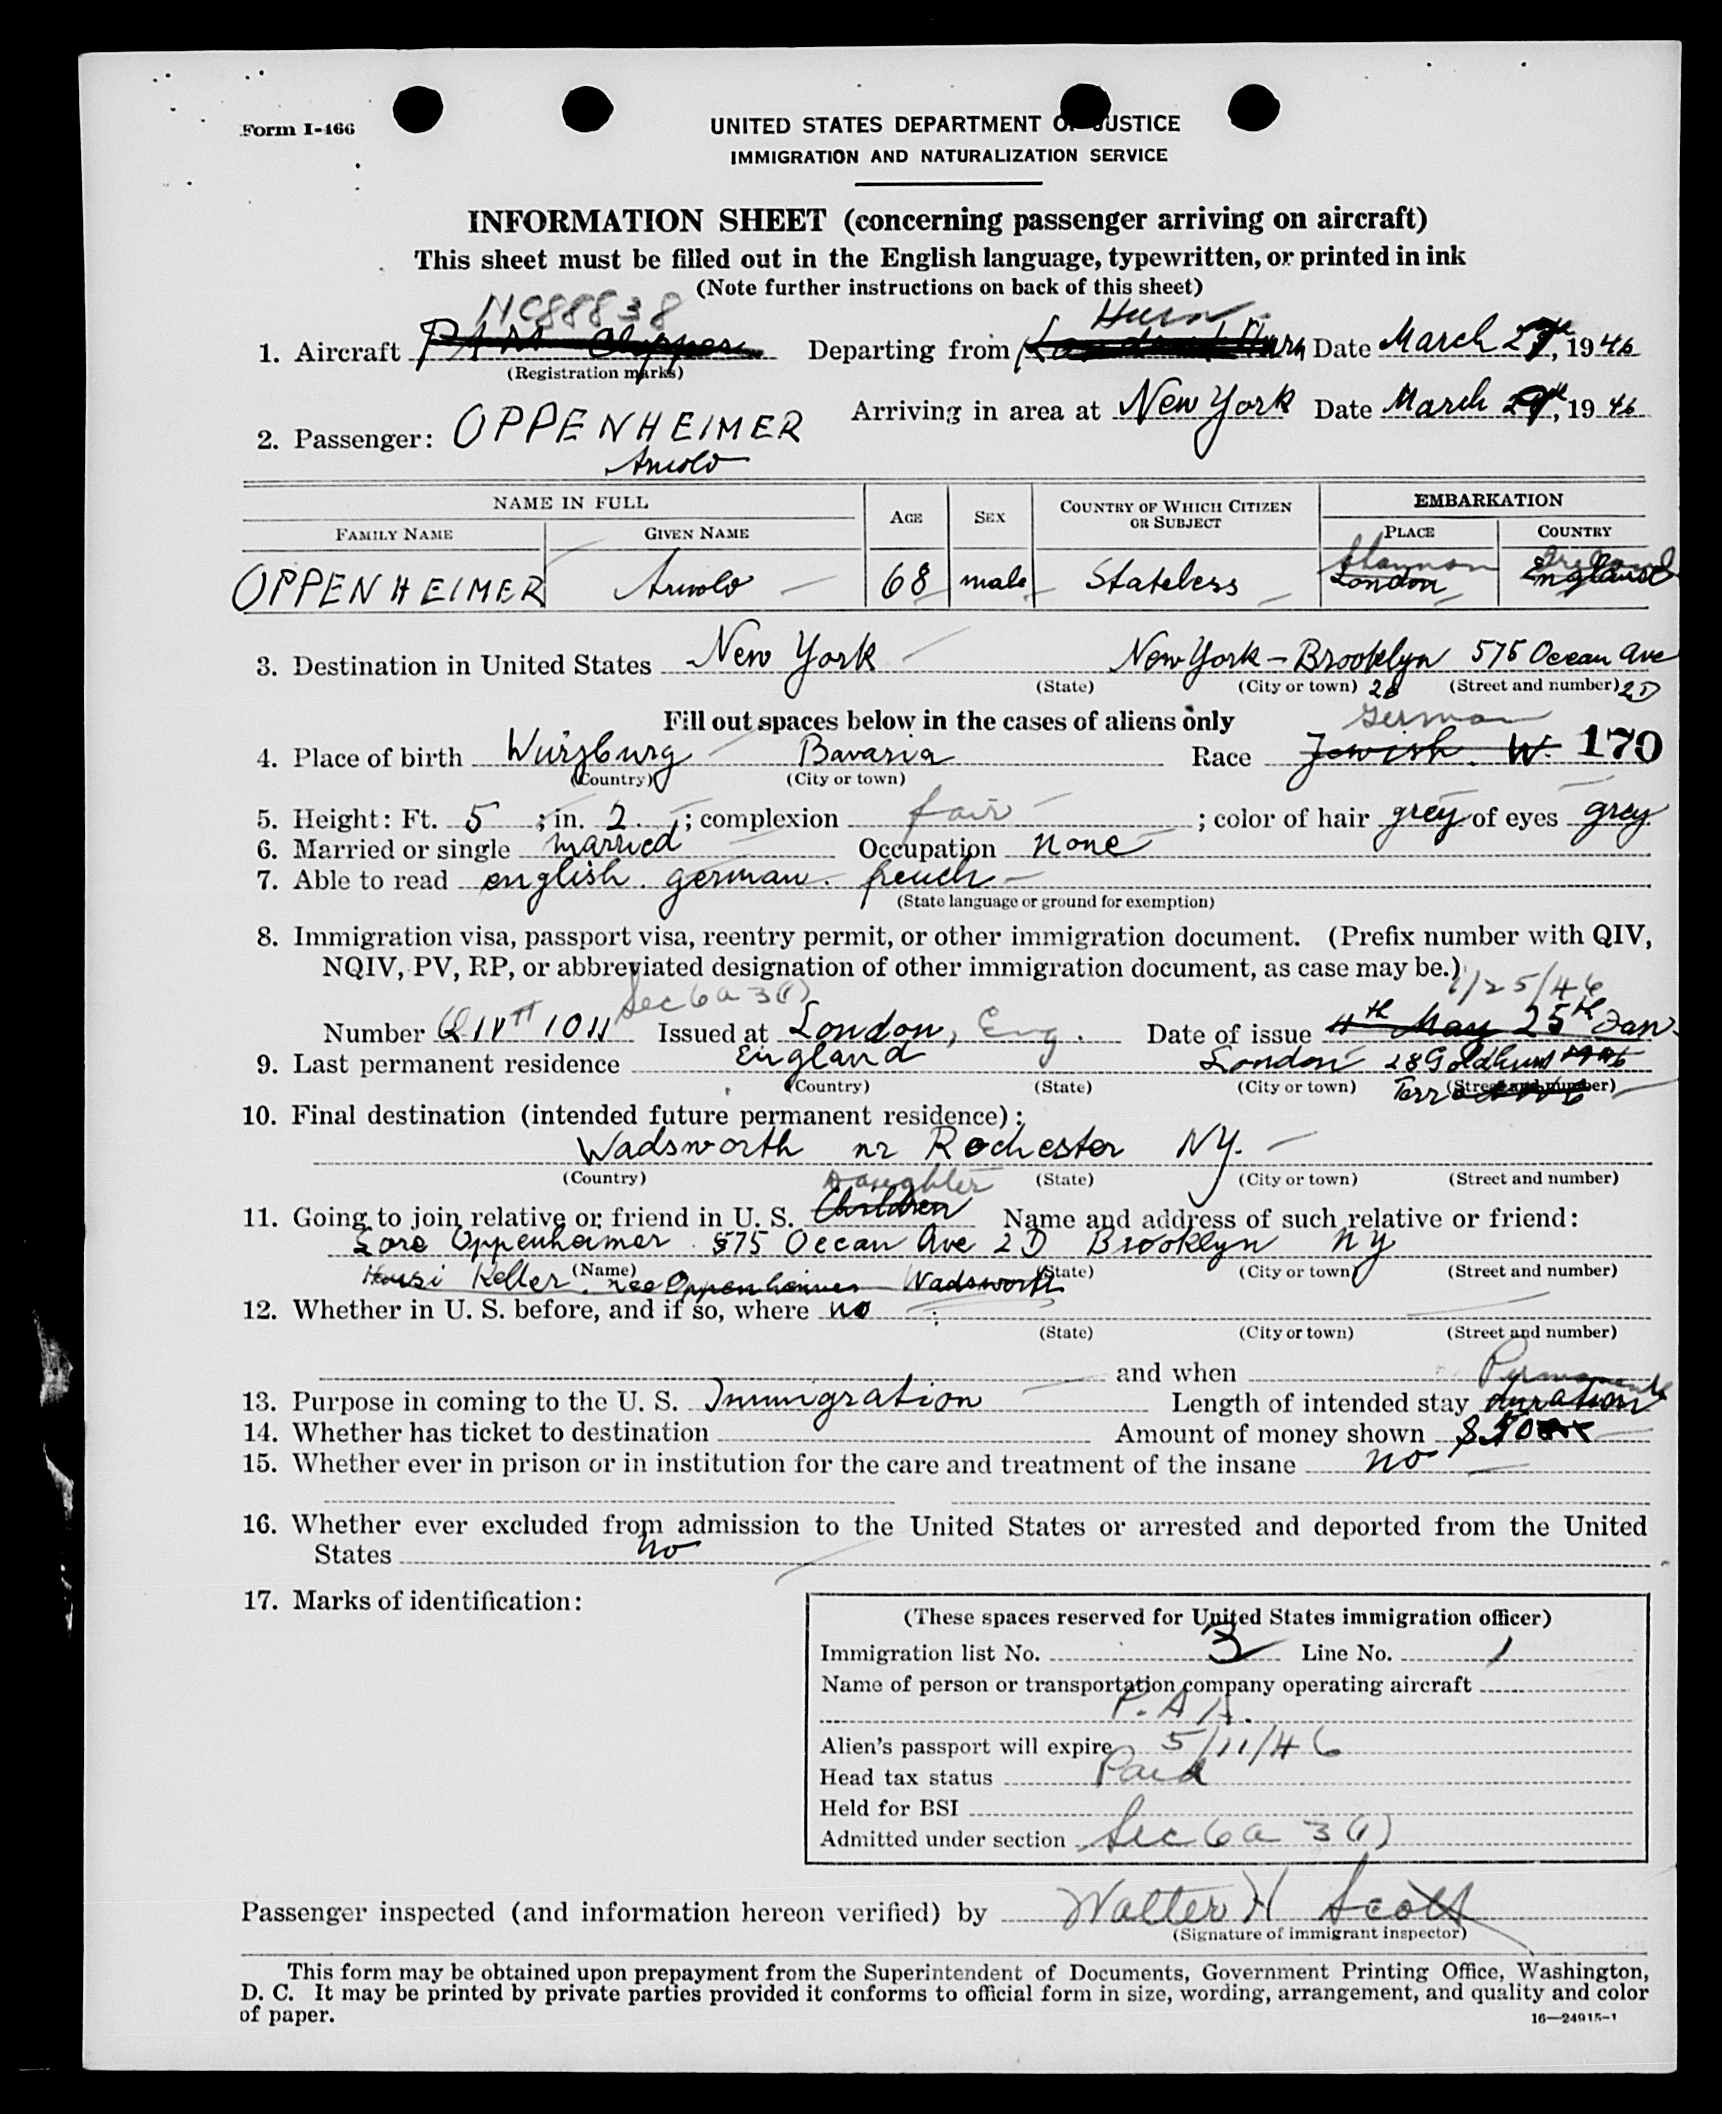 Form I-466
UNITED STATES DEPARTMENT OF JUSTICE
IMMIGRATION AND NATURALIZATION SERVICE
INFORMATION SHEET (concerning passenger arriving on aircraft)
This sheet must be filled out in the English language, typewritten, or printed in ink
(Note further instructions on back of this sheet)
NC88838 Hurn
1. Aircraft Clipper Departing from Hurn Date March 27th, 1946
(Registration marks)
Arriving in area at New York Date March 29th, 1946
2. Passenger: OPPENHEIMER
Arnold
NAME IN FULL AGE SEX COUNTRY OF WHICH CITIZEN OR SUBJECT EMBARKATION
FAMILY NAME GIVEN NAME PLACE COUNTRY
Shannon Ireland
OPPENHEIMER Arnold 68 male Stateless London England
3. Destination in United States New York New York - Brooklyn 575 Ocean Ave
(State) (City or town) 26 (Street and number) 2D
Fill out spaces below in the cases of aliens only
German
4. Place of birth Würzburg Bavaria Race Jewish. W. 170
(Country) (City or town)
5. Height: Ft. 5 ; in. 2. ; complexion fair ; color of hair grey of eyes grey
6. Married or single married Occupation none
7. Able to read english. german. french
(State language or ground for exemption)
8. Immigration visa, passport visa, reentry permit, or other immigration document. (Prefix number with QIV,
NQIV, PV, RP, or abbreviated designation of other immigration document, as case may be.)
Sec 6a 3(1) 1/25/46
Number QIV 1011 Issued at London, Eng. Date of issue 4th May 25th Jan
9. Last permanent residence England London 28 Goldhurst 1946
(Country) (State) (City or town) Terr (Street and number)
10. Final destination (intended future permanent residence):
Wadsworth nr Rochester NY.
(Country) (State) (City or town) (Street and number)
Daughter
11. Going to join relative or friend in U. S. Children Name and address of such relative or friend:
Lore Oppenheimer 575 Ocean Ave 2D Brooklyn NY
(Name) (State) (City or town) (Street and number)
Keller nee Oppenheimer Wadsworth
12. Whether in U. S. before, and if so, where no
(State) (City or town) (Street and number)
and when
Permanent
13. Purpose in coming to the U. S. Immigration Length of intended stay duration
14. Whether has ticket to destination Amount of money shown $50
15. Whether ever in prison or in institution for the care and treatment of the insane no
16. Whether ever excluded from admission to the United States or arrested and deported from the United
States no
17. Marks of identification:
(These spaces reserved for United States immigration officer)
Immigration list No. 3 Line No. 1
Name of person or transportation company operating aircraft
P.A.A.
Alien's passport will expire 5/11/46
Head tax status Paid
Held for BSI
Admitted under section Sec 6a 3(1)
Passenger inspected (and information hereon verified) by Walter H Scott
(Signature of immigrant inspector)
This form may be obtained upon prepayment from the Superintendent of Documents, Government Printing Office, Washington,
D. C. It may be printed by private parties provided it conforms to official form in size, wording, arrangement, and quality and color
of paper.
16—24915-1